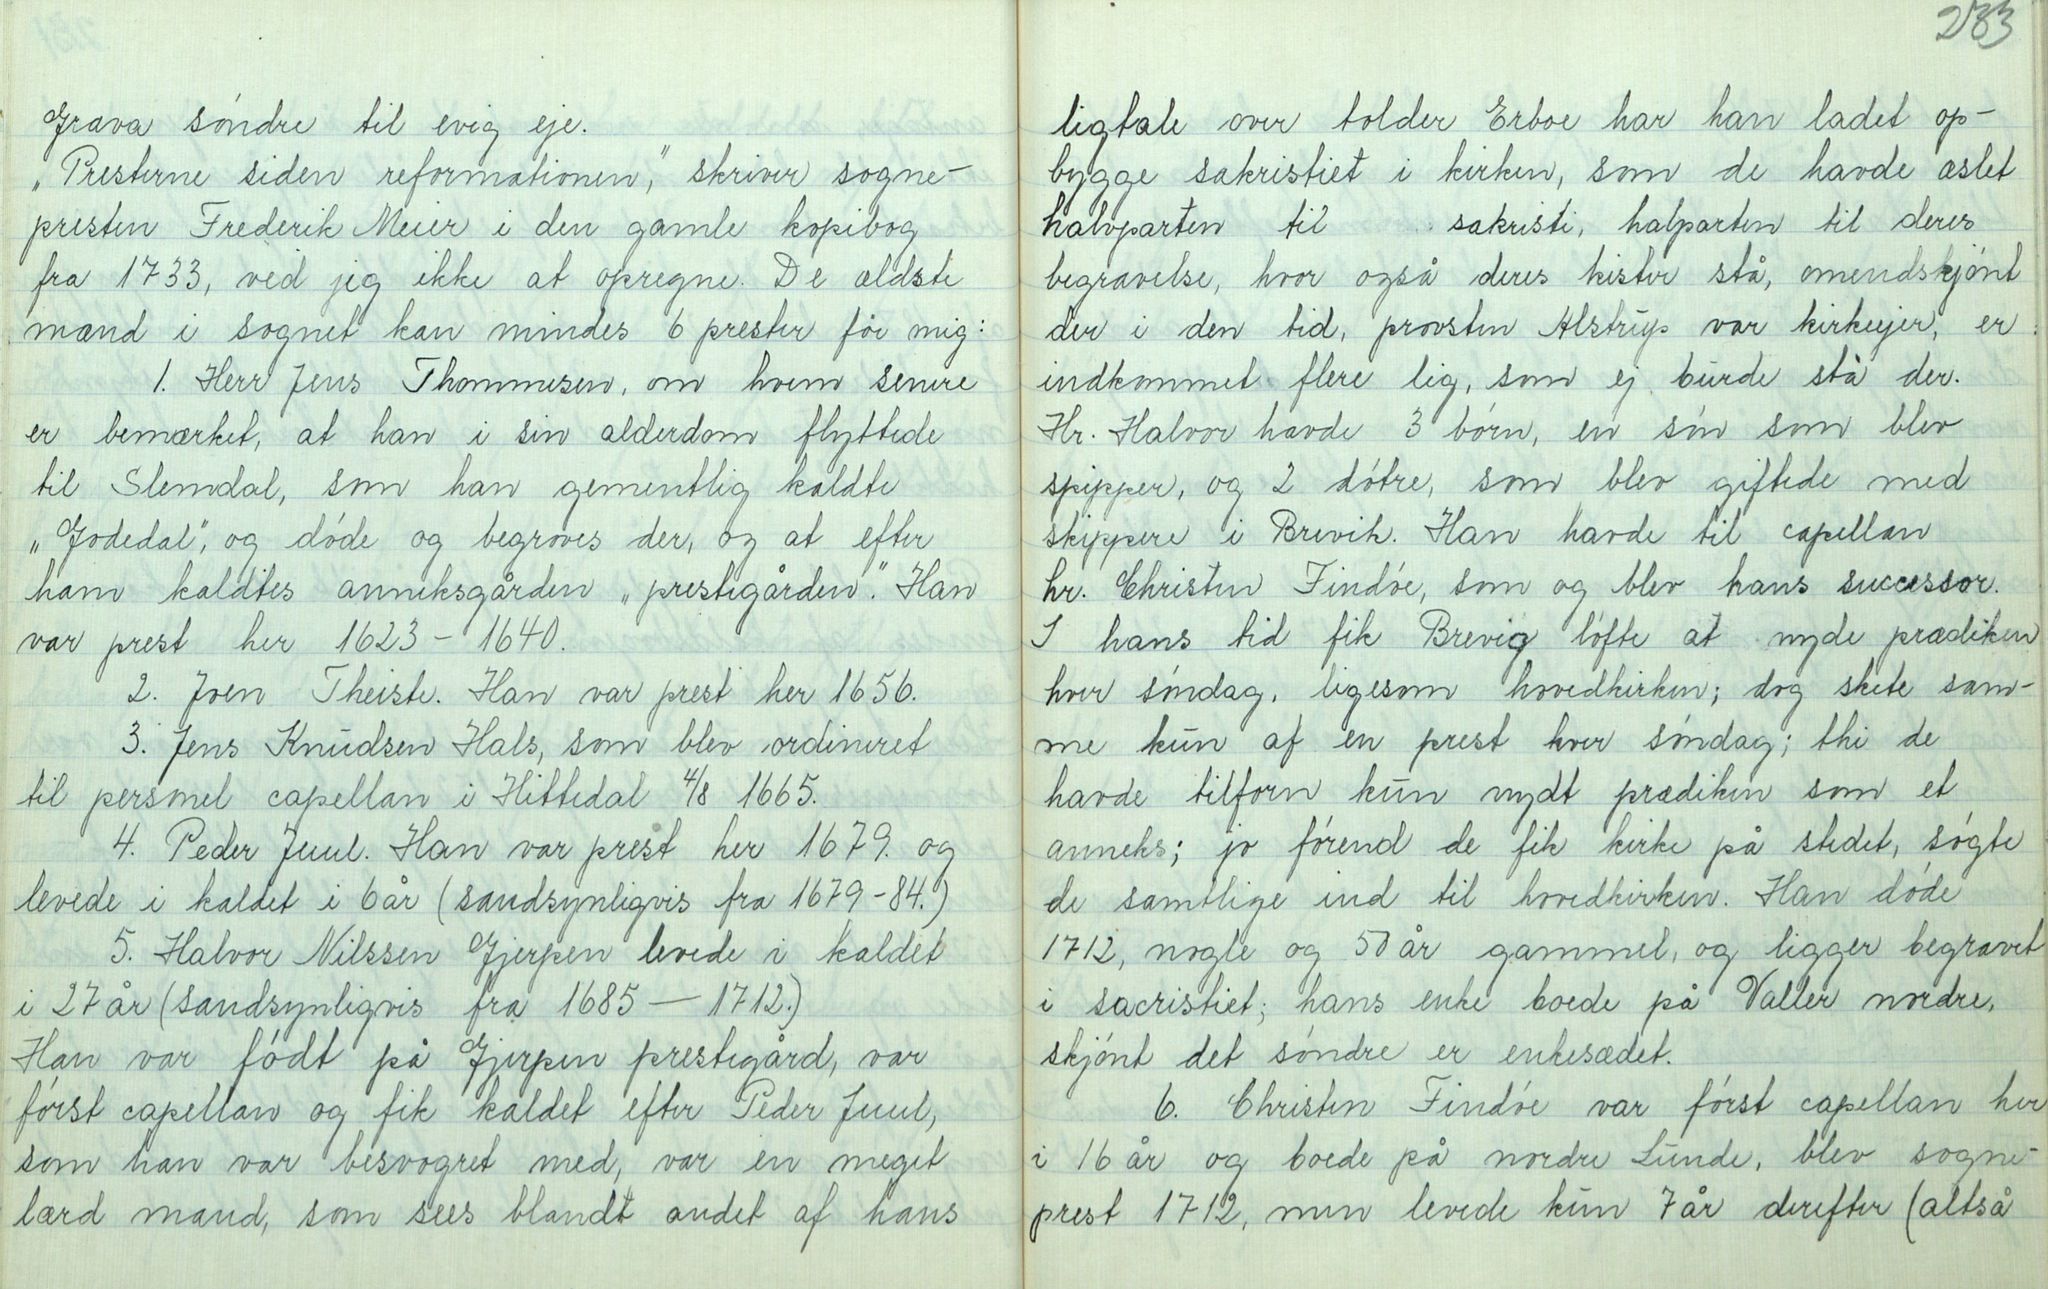 Grava söndre til evig eje.
„Presterne siden reformationen," skriver sogne-
presten Frederik Meier i den gamle kopibog
fra 1733, ved jeg ikke at opregne. De ældste
mænd i sognet kan mindes 6 prester før mig:
1. Herr Jens Thommesen, om hvem senere
er bemærket, at han i sin alderdom flyttede
til Slemdal, som han gementlig kaldte
„Jodedal", og døde og begroves der, og at efter
ham kaldtes anneksgården „prestegården". Han
var prest her 1623-1640.
2. Iven Theiste. Han var prest her 1656.
3. Jens Knudsen Hals, som blev ordineret
til personel capellan i Hittedal 4/8 1665.
4. Peder Juul. Han var prest her 1679. og
levede i kaldet i 6 år (sandsynligvis fra 1679-84.)
5. Halvor Nilssen Gjerpen levede i kaldet
i 27 år (sandsynligvis fra 1685 — 1712.)
Han var födt på Gjerpen prestegård, var
först capellan og fik kaldet efter Peder Juul,
som han var besvogret med, var en meget
lærd mand, som sees blandt andet af hans
283
ligtale over tolder Erboe har han ladet op-
bygge sakristiet i kirken, som de havde æslet
halvparten til sakristi, halparten til deres
begravelse, hvor også deres kister stå, omendskjönt
der i den tid, provsten Alstrup var kirkeejer, er
indkommet flere lig, som ej burde stå der.
Hr. Halvor havde 3 börn, en sön som blev
spipper, og 2 dötre, som blev giftede med
skippere i Brevik. Han havde til capellan
hr. Christen Findöe, som og blev hans successor.
I hans tid fik Brevig löfte at nyde prædiken
hver söndag, ligesom hovedkirken; dog skete sam-
me kun af en prest hver söndag; thi de
havde tilforn kun nydt prædiken som et
anneks; jo förend de fik kirke på stedet, sögte
de samtlige ind til hovedkirken. Han döde
1712, nogle og 50 år gammel, og ligger begravet
i sacristiet; hans enke boede på Valler nordre,
skjönt det söndre er enkesædet.
6. Christen Findöe var först capellan her
i 16 år og boede på nordre Lunde, blev sogne-
prest 1712, men levede kun 7 år derefter (altså